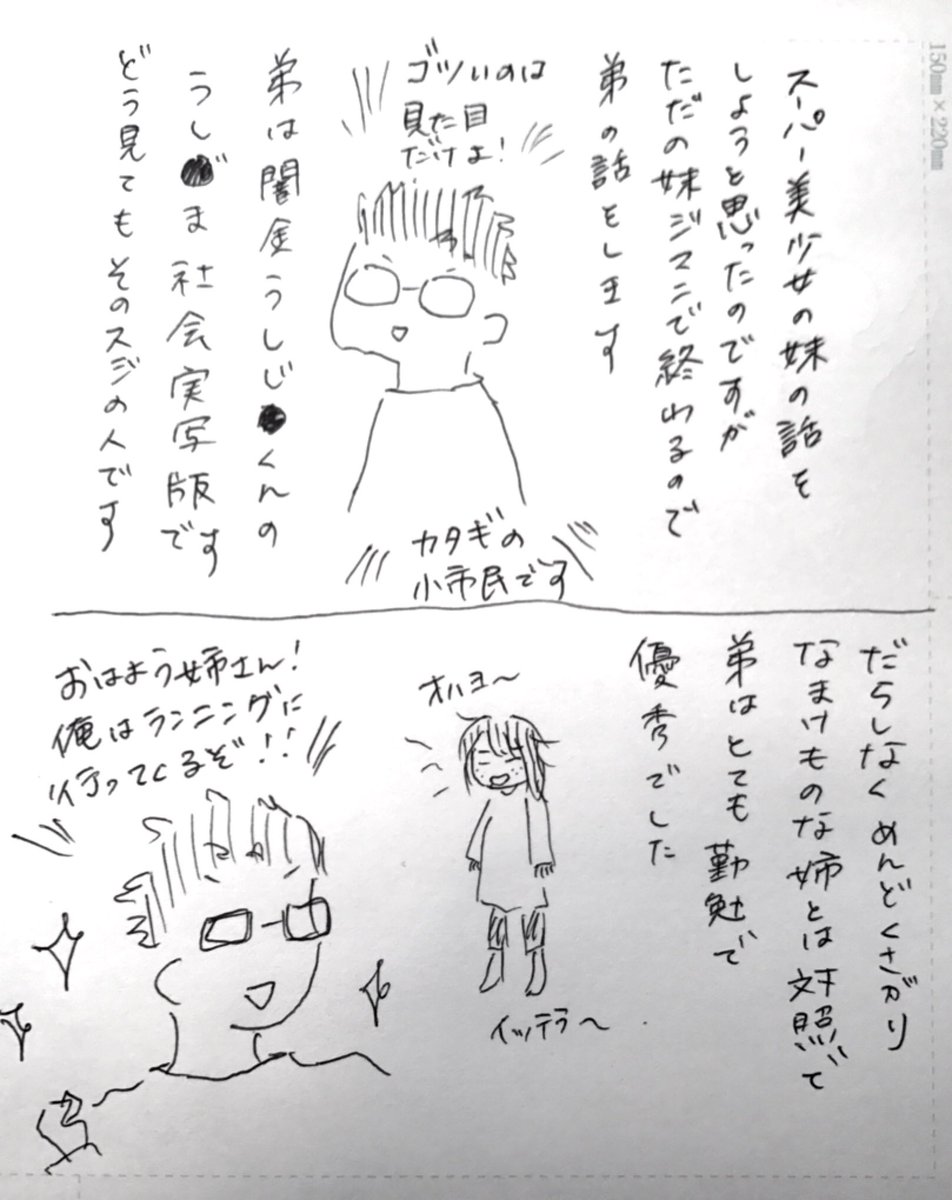 スーパー美少女の妹の話を
しようと思ったのですが
ただの妹ジマンで終わるので
弟の話をします
ゴツいのは
見た目
だけよ!
弟は闇金うしじ●くんの
うし●゛ま社会実写版です
どう見てもそのスジの人です
カタギの
小市民です
だらしなくめんどくさがり
なまけものな姉とは対照で
弟はとても勤勉で
優秀でした
オハヨ〜
イッテラ〜
おはよう姉さん!
俺はランニングに
行ってくるぞ!!
150mm×220mm